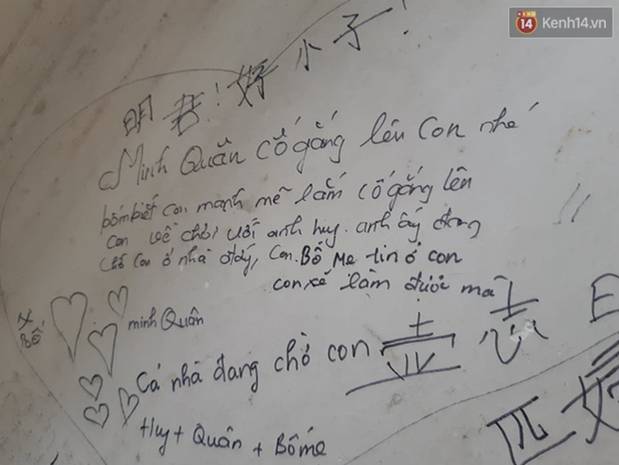 14 Kenh14.vn
明君!好小子!
Minh Quân cố gắng lên con nhé
bốmẹ biết con mạnh mẽ lắm cố gắng lên
con về chơi với anh huy. anh ấy đang
chờ con ở nhà đấy, con. Bố Mẹ tin ở con
con sẽ làm được mà
minh Quân
Bố
Cả nhà đang chờ con
Huy + Quân + Bốmẹ